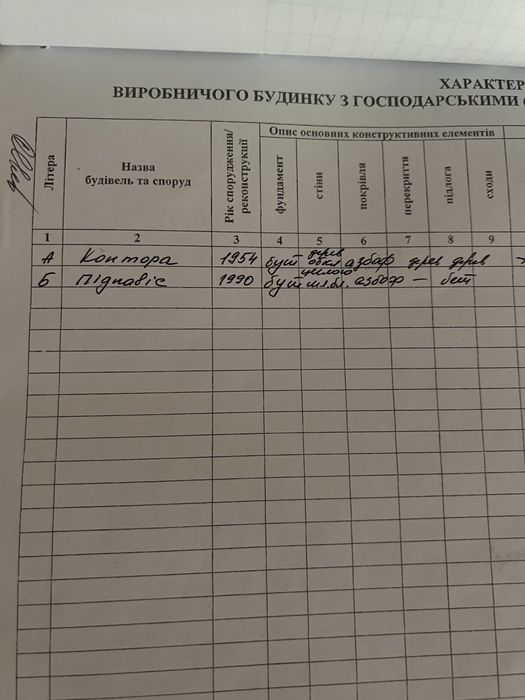 ХАРАКТЕР
ВИРОБНИЧОГО БУДИНКУ З ГОСПОДАРСЬКИМИ
Літера
Назва
будівель та споруд
Рік спорудження/
реконструкції
Опис основних конструктивних елементів
фундамент
стіни
покрівля
перекриття
підлога
сходи
1 2 3 4 5 6 7 8 9
А Контора 1954 бут дерев обкл цеглою азбоф дерев дерев
Б Піднавіс 1990 бут шл.бл. азбоф — бет